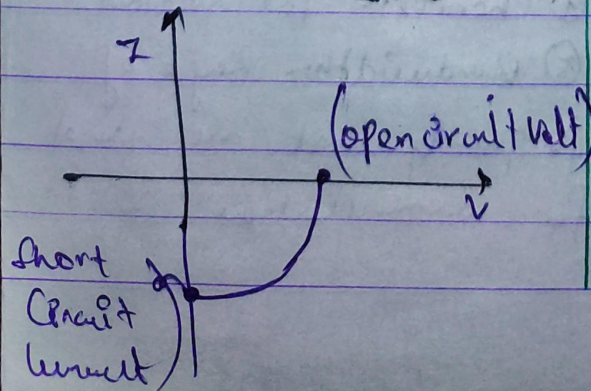 I
(open circuit Volt)
V
Short
Circuit
Current